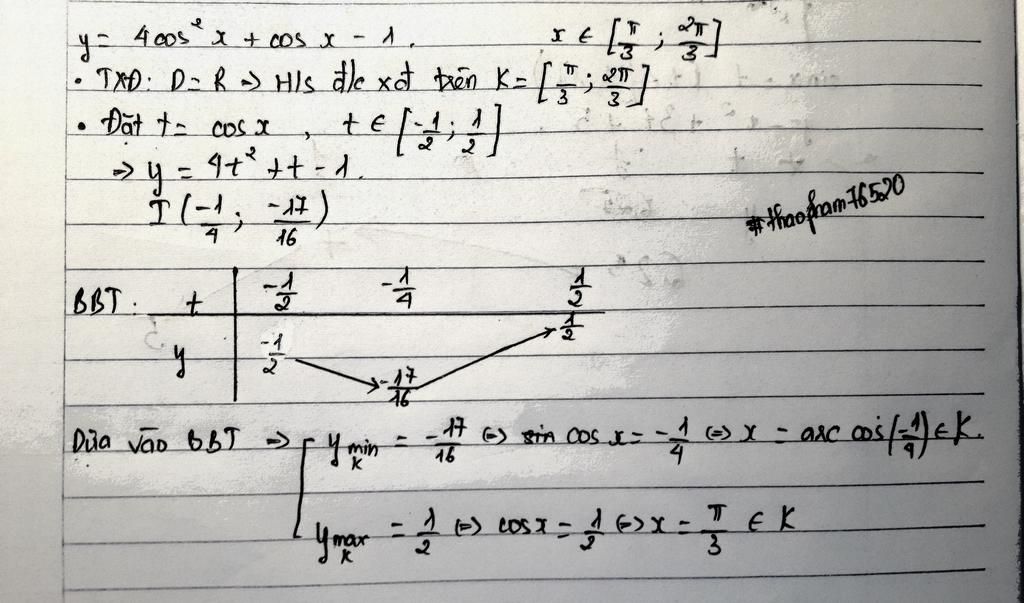 y = 4cos² x + cos x - 1. x ∈ [π/3 ; 2π/3]
• TXĐ: D = R => H/s đ/c xđ trên K = [π/3 ; 2π/3]
• Đặt t = cos x , t ∈ [-1/2 ; 1/2]
=> y = 4t² + t - 1.
I (-1/4 ; -17/16)
#thaopham76520
BBT: t -1/2 -1/4 1/2
y -1/2 -17/16 1/2
Dựa vào BBT => y min K = -17/16 <=> cos x = -1/4 <=> x = arc cos (-1/4) ∈ K.
y max K = 1/2 <=> cos x = 1/2 <=> x = π/3 ∈ K